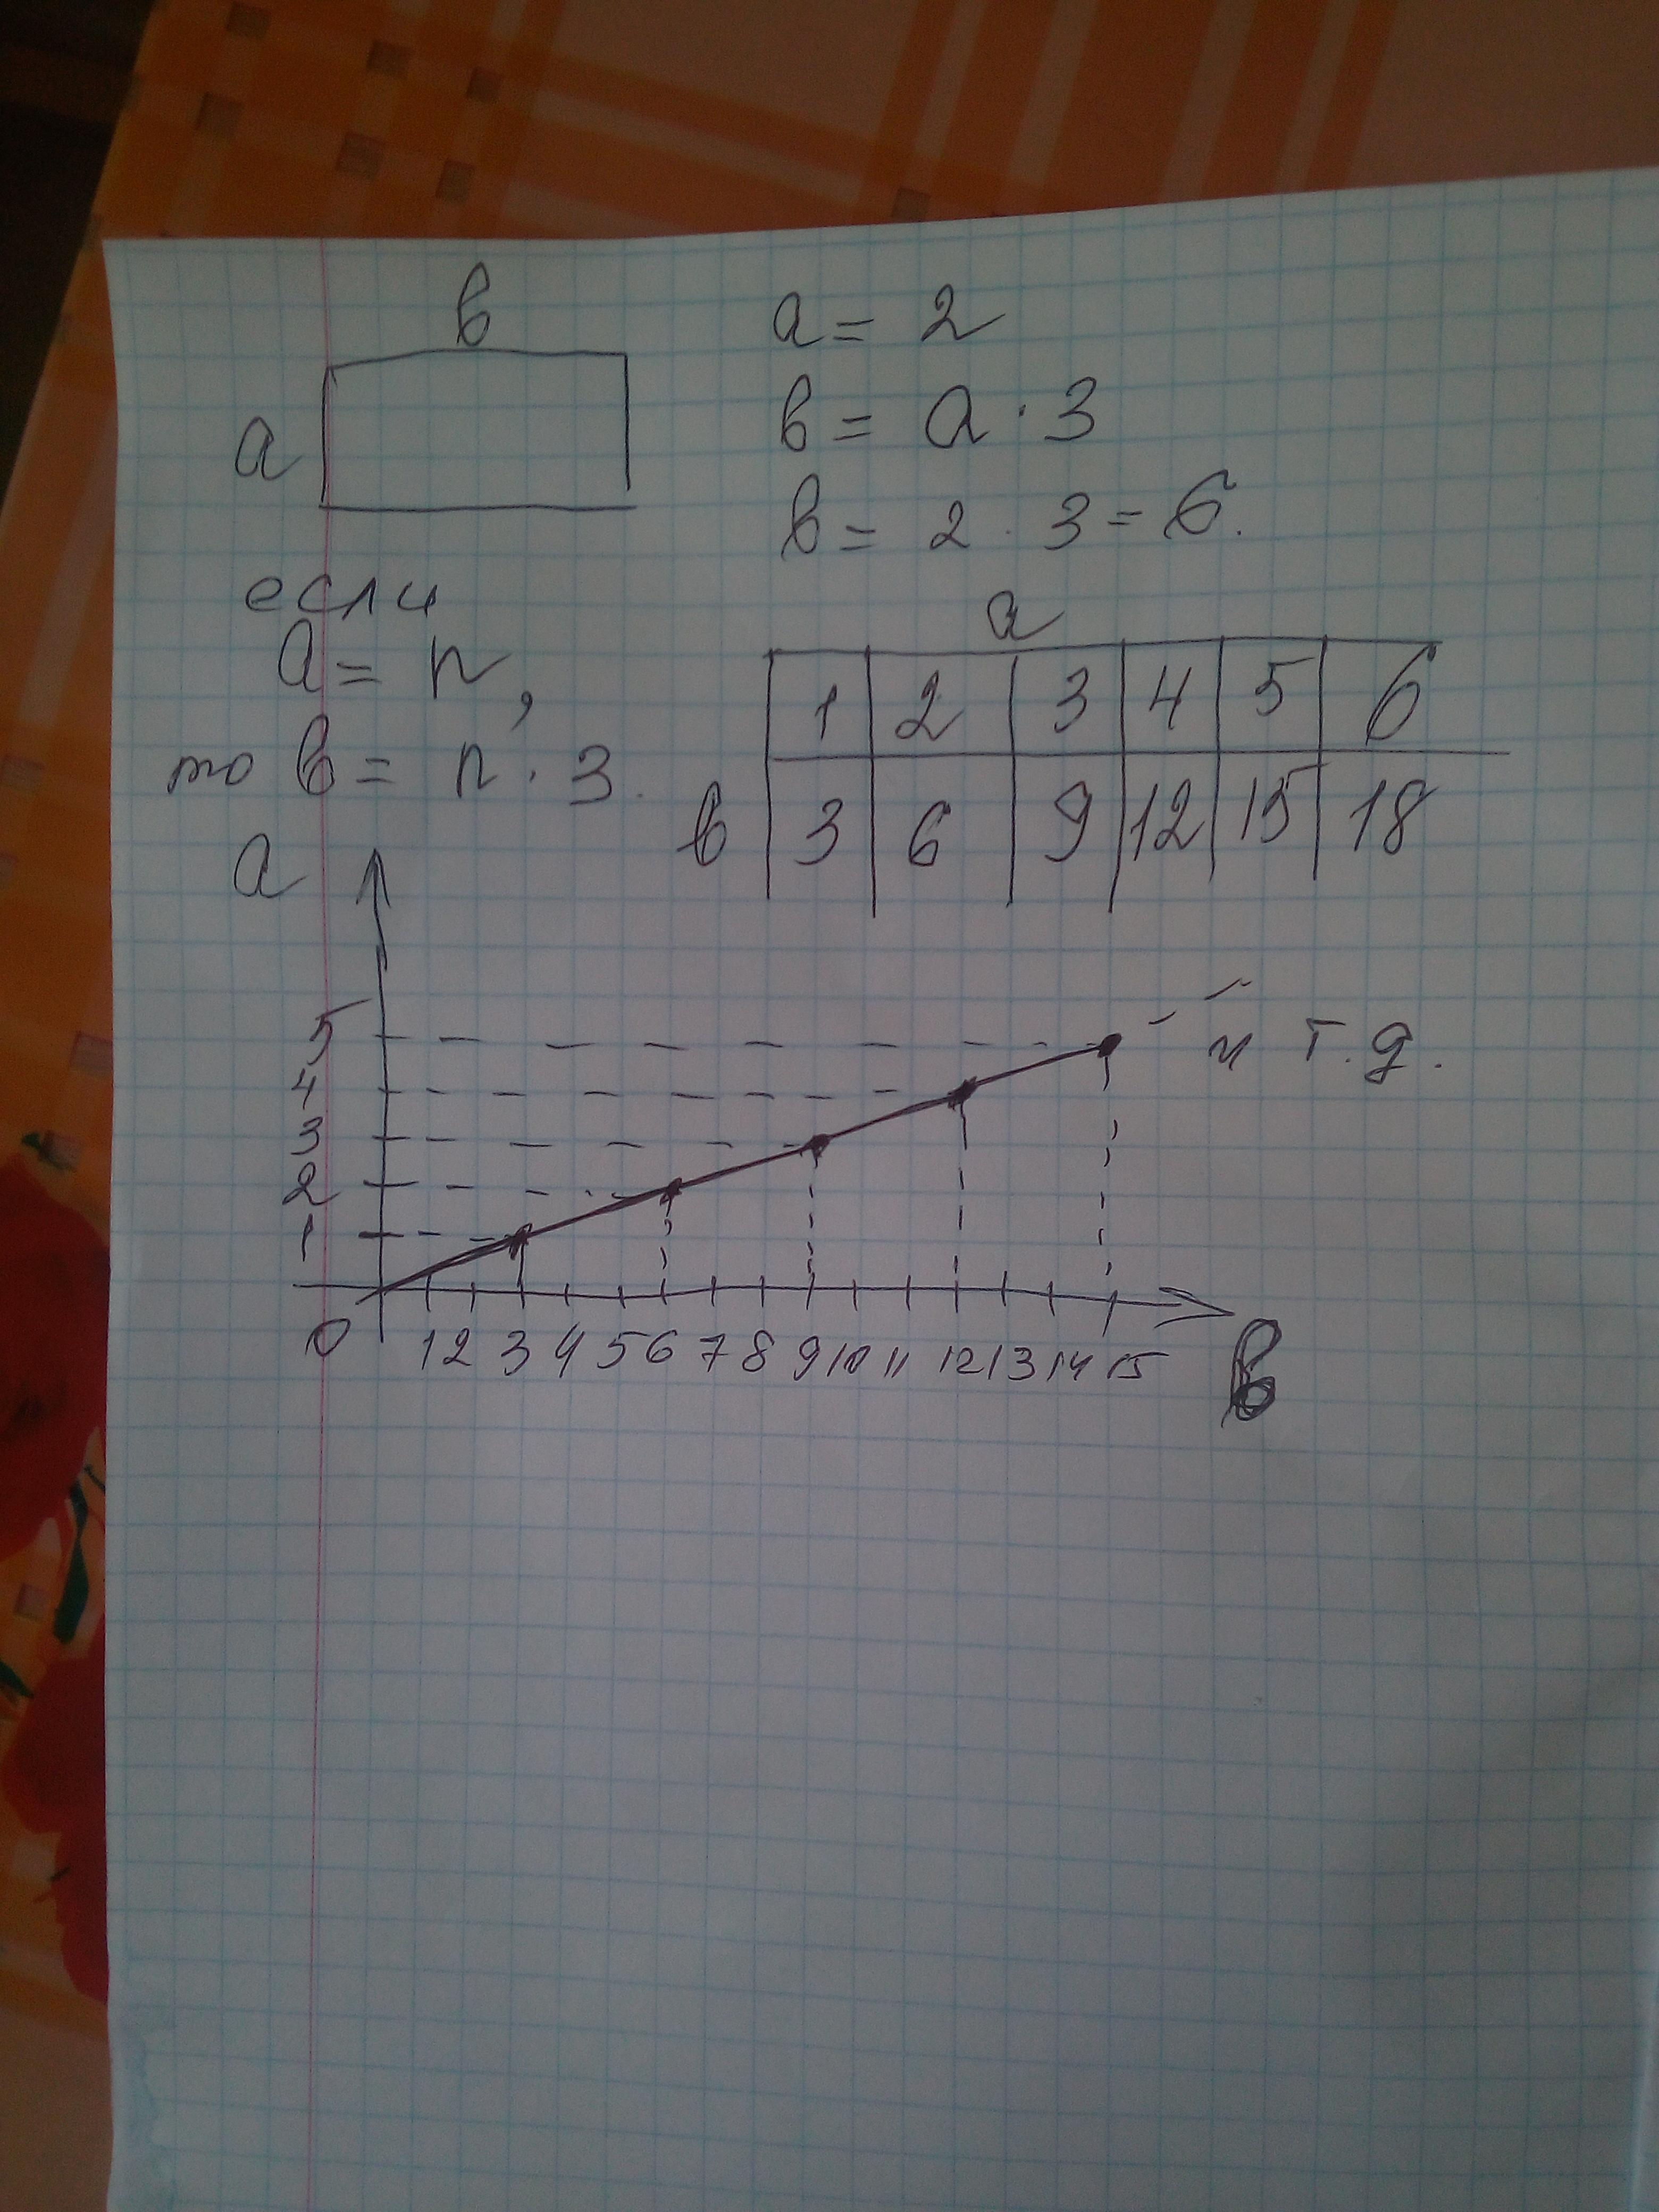 в
a
a = 2
в = a · 3
в = 2 · 3 = 6.
если
a = n,
то в = n · 3.
a
1 2 3 4 5 6
в 3 6 9 12 15 18
a
5
4
3
2
1
и т.д.
0 1 2 3 4 5 6 7 8 9 10 11 12 13 14 15
в